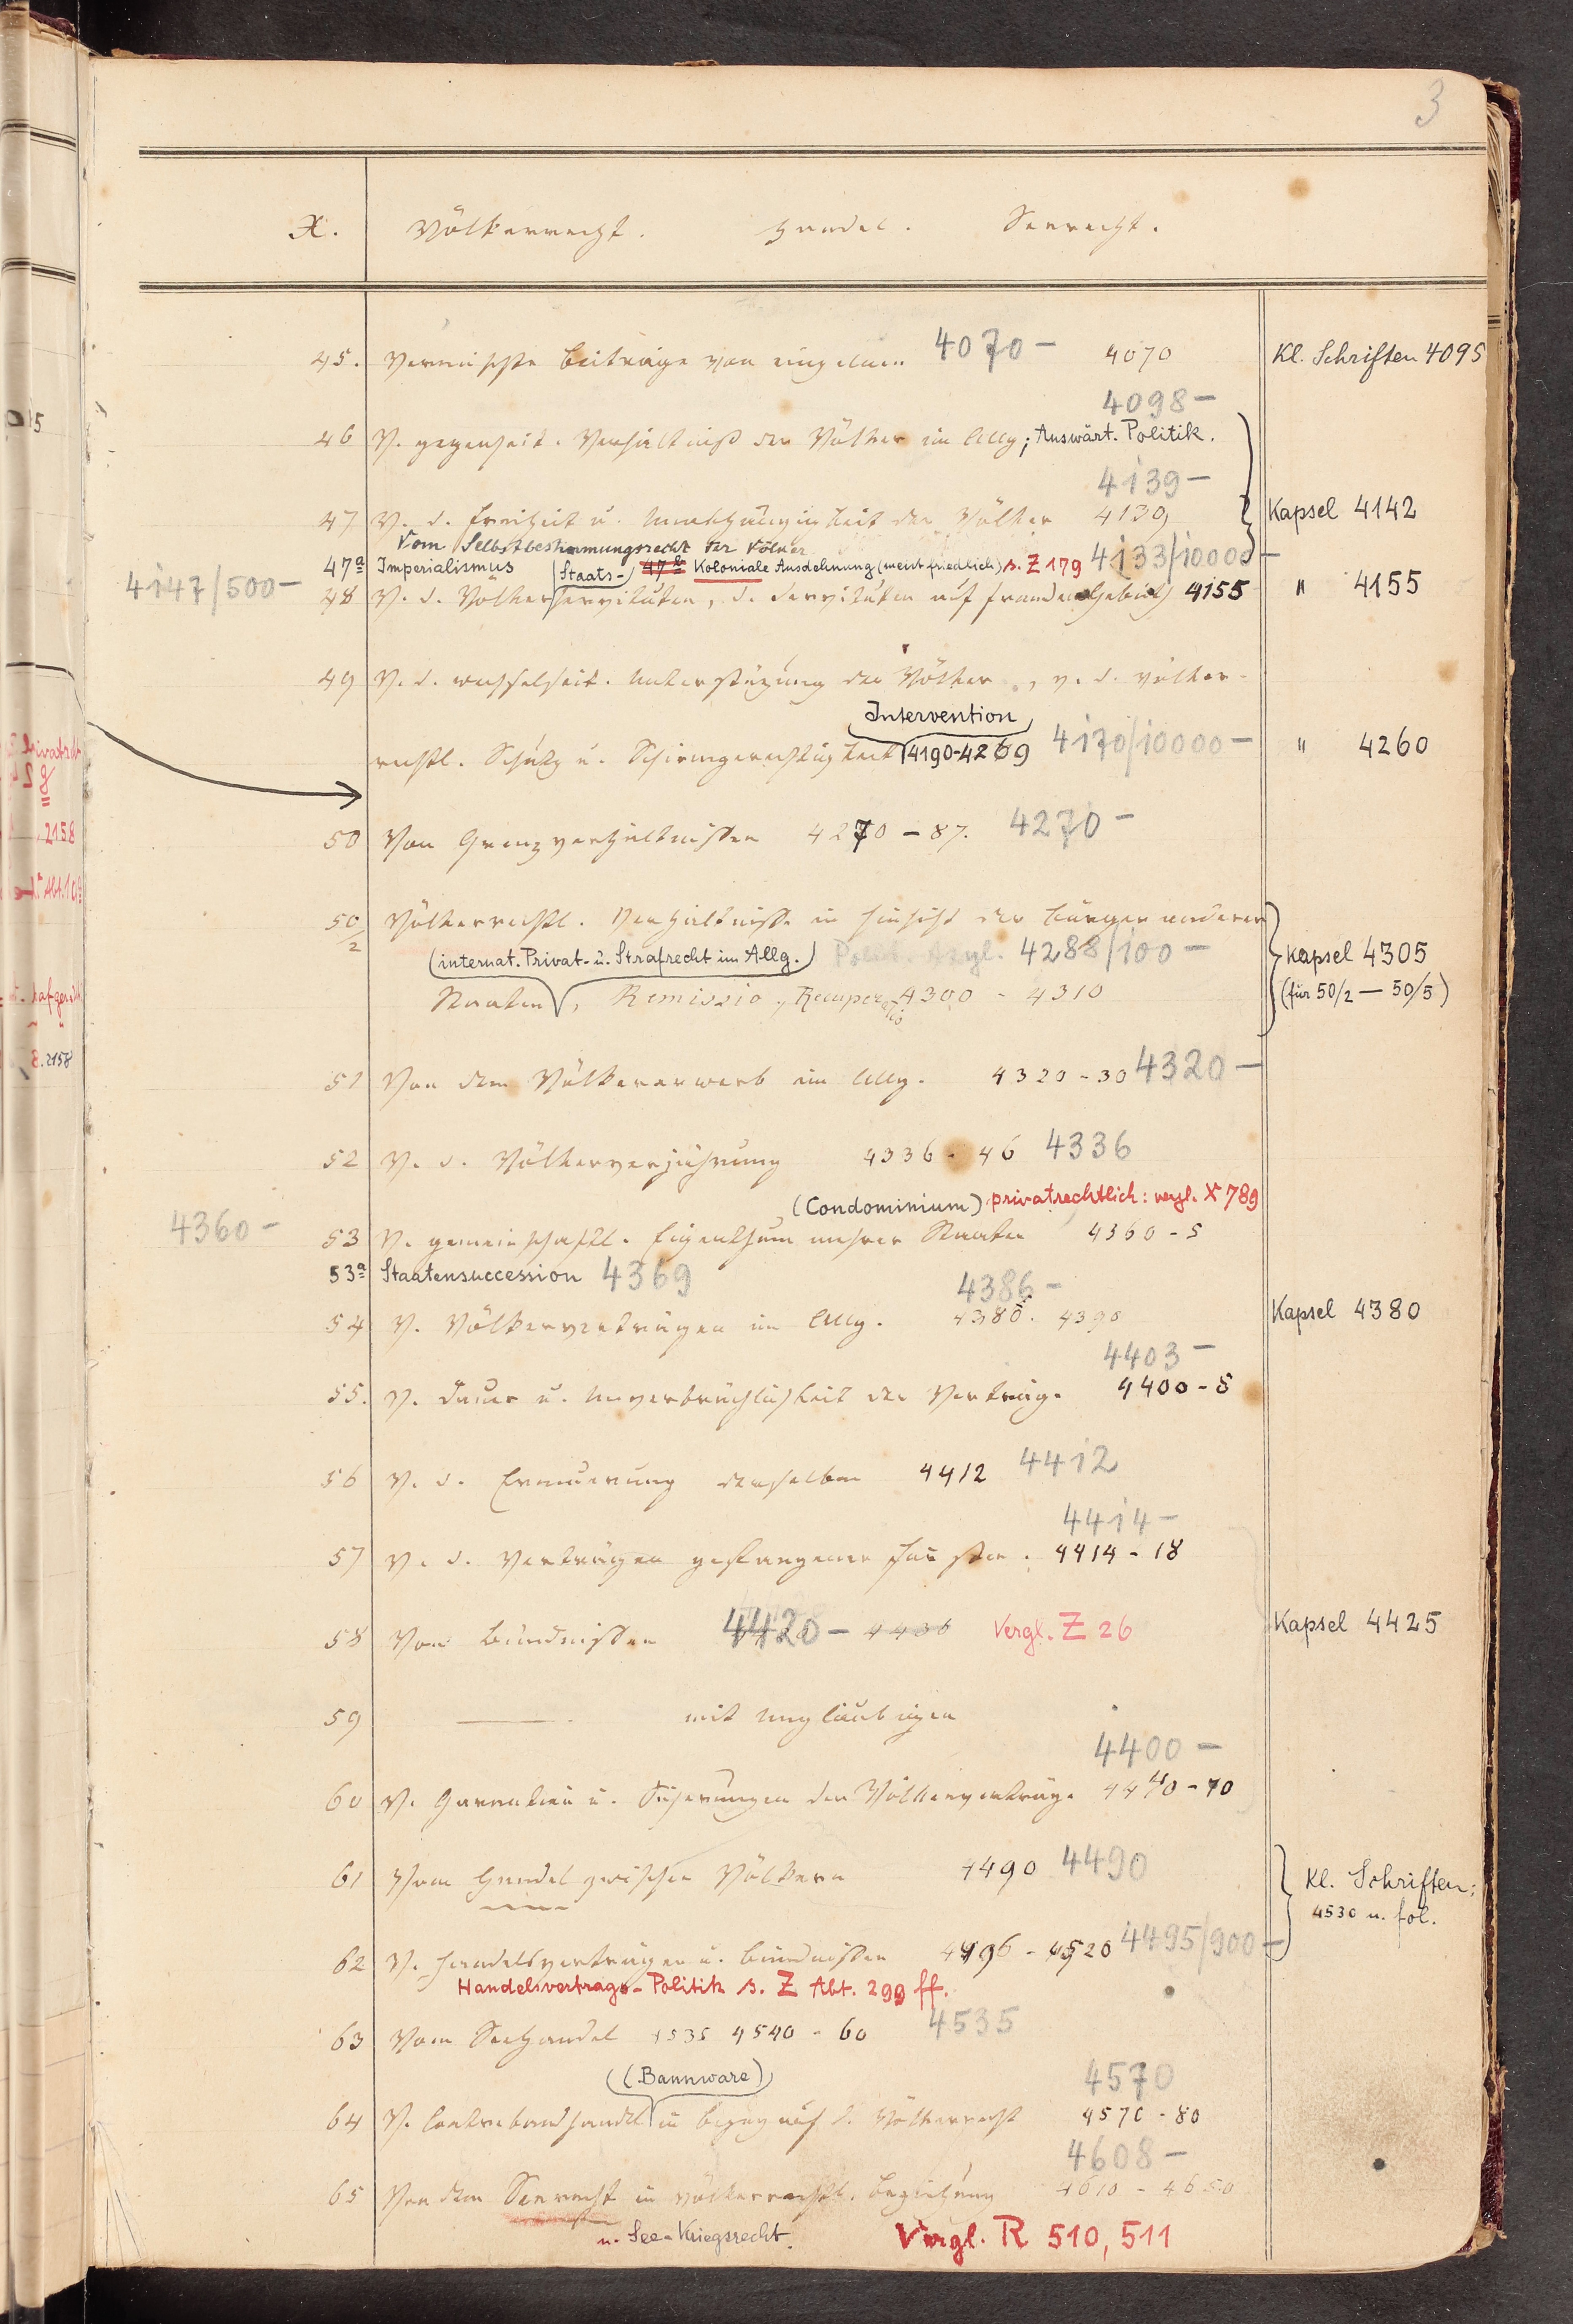 3
X. Völkerrecht. Handel. Seerecht.
45. Vermischte Beiträge von einzelnen 4070 – 4070 Kl. Schriften 4095
4098 –
46 V. gegenseit. Verhältniß der Völker im Allg; Auswärt. Politik.
4139 –
47 V. d. Freiheit u. Unabhängigkeit der Völker 4139 Kapsel 4142
Vom Selbstbestimmungsrecht der Völker
47a Imperialismus 47b Koloniale Ausdehnung (meist friedlich) s. Z 179 4133/10000 –
4147/500 –
(Staats-)
48 V. d. Völkerservituten, d. Servituten auf fremdem Gebiet 4155 " 4155
49 V. d. wechselseit. Unterstützung der Völker, v. d. völker-
Intervention
rechtl. Schutz u. Schirmgerechtigkeit 4190-4269 4170/10000 – " 4260
50 Von Grenzverhältnissen 4270 – 87. 4270 –
50/2 Völkerrechtl. Verhältnisse in Hinsicht der Bürger anderer
(internat. Privat- u. Strafrecht im Allg.) Polit. Asyl. 4288/100 – Kapsel 4305
Staaten, Remissio, Recuperatio 4300 - 4310 (für 50/2 — 50/5)
51 Von dem Völkererwerb im Allg. 4320 - 30 4320 –
52 V. d. Völkerverjährung 4336 - 46 4336
(Condominium) privatrechtlich: vergl. X 789
4360 –
53 V. gemeinschaftl. Eigenthum mehrer Staaten 4360 - 5
53a Staatensuccession 4369
4386 –
54 V. Völkerverträgen im Allg. 4380. 4390 Kapsel 4380
4403 –
55. V. Dauer u. Unverbrüchlichkeit der Verträge 4400 - 5
56 V. d. Erneuerung derselben 4412 4412
4414 –
57 V. d. Verträgen gefangener Fürsten. 4414 - 18
58 Von Bündnissen 4420 – 4436 Vergl. Z 26 Kapsel 4425
59 —— mit Ungläubigen
4400 –
60 V. Garantien u. Sicherungen der Völkerverträge 4440 - 70
61 Vom Handel zwischen Völkern 4490 4490
Kl. Schriften:
4530 u. fol.
62 V. Handelsverträgen u. Bündnissen 4496 - 4520 4495/900 –
Handelsvertrags-Politik s. Z Abt. 299 ff.
63 Vom Seehandel 4535 4540 - 60 4535
(Bannware)
4570
64 V. Contrebandhandel in Bezug auf d. Völkerrecht 4570 - 80
4608 –
65 Von dem Seerecht in völkerrechtl. Beziehung 4610 - 4650
u. See-Kriegsrecht. Vergl. R 510, 511